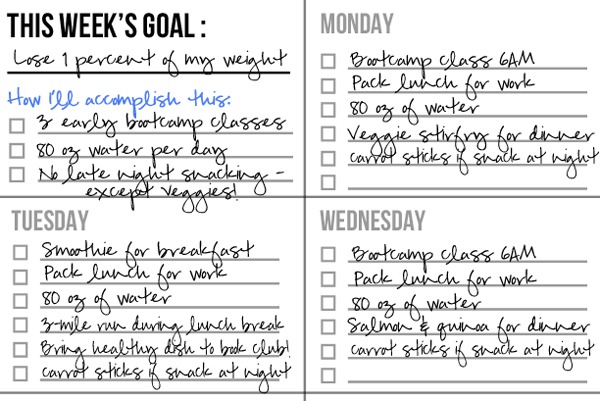 THIS WEEK'S GOAL :
Lose 1 percent of my weight
How I'll accomplish this:
3 early bootcamp classes
80 oz water per day
No late night snacking -
except veggies!
MONDAY
Bootcamp class 6AM
Pack lunch for work
80 oz of water
Veggie stirfry for dinner
carrot sticks if snack at night
TUESDAY
Smoothie for breakfast
Pack lunch for work
80 oz of water
3-mile run during lunch break
Bring healthy dish to book club!
carrot sticks if snack at night
WEDNESDAY
Bootcamp class 6AM
Pack lunch for work
80 oz of water
Salmon & quinoa for dinner
carrot sticks if snack at night